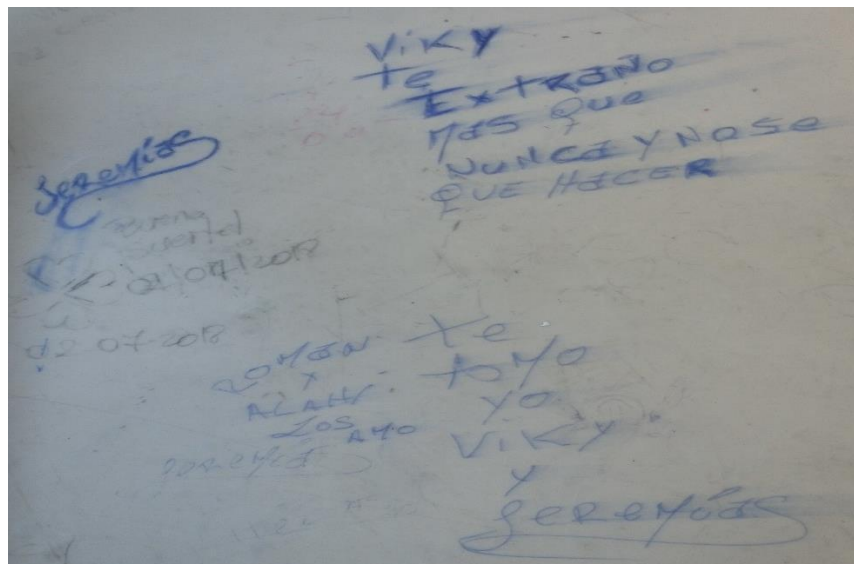 ViKY
te
ExtRaÑo
Mas que
NUNCa Y NOSe
QUE HaCER
Jeremías
buena
suerte
02/07/2018
d2 07-2018
ROMaN
Y
ALAN
LOS AMO
Jeremías
te
aMO
YO
ViKY
Y
JeReMías